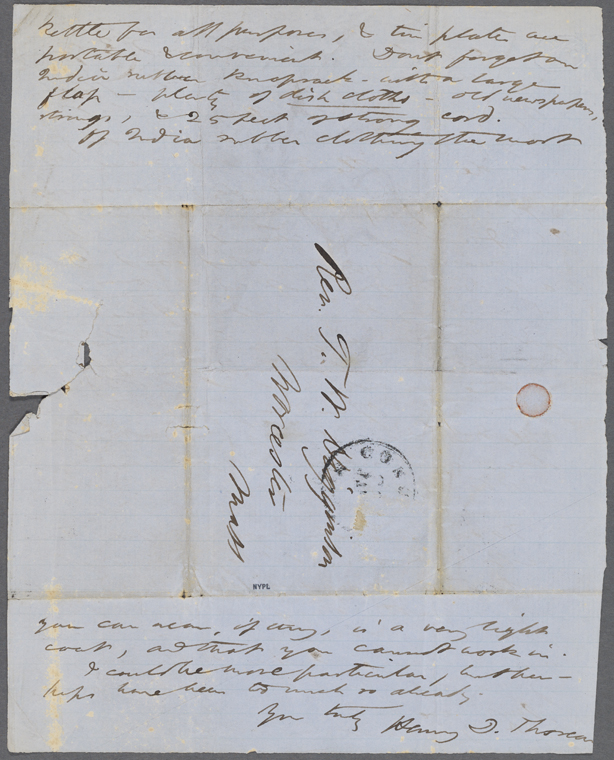 kettle for all purposes, & tin plates are
portable & convenient. Dont forget an
India rubber knapsack - with a large
flap - plenty of dish cloths - old newspapers,
strings, & 25 feet of strong cord.
Of India rubber clothing the most
Rev. T. W. Higginson
Worcester
Mass
CONC
NYPL
you can wear, if any, is a very light
coat, and that you cannot work in.
I could be more particular, but per-
haps have been too much so already.
Yrs truly Henry D. Thoreau